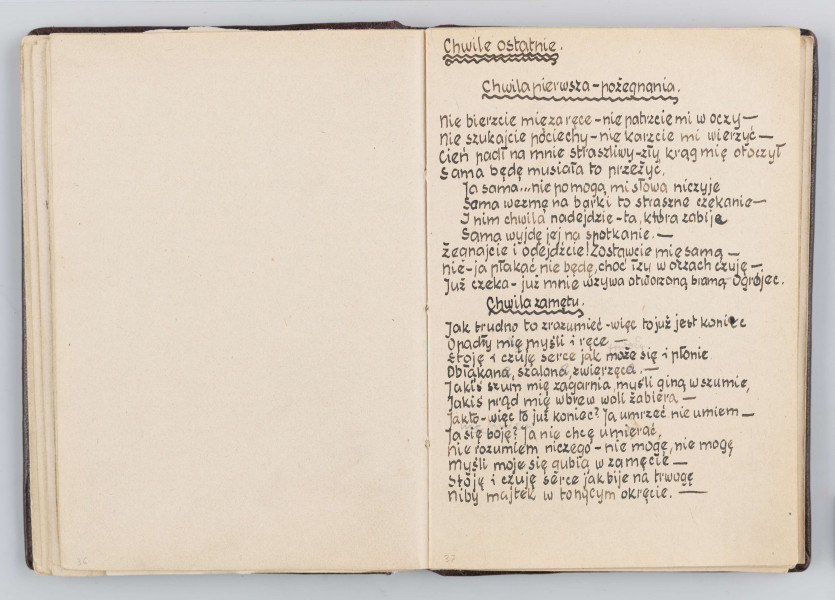 Chwile ostatnie.
Chwila pierwsza - pożegnania.
Nie bierzcie mię za ręce - nie patrzcie mi w oczy —
Nie szukajcie pociechy - nie karzcie mi wierzyć —
Cień padł na mnie straszliwy - zły krąg mię otoczył
Sama będę musiała to przeżyć.
Ja sama... nie pomogą mi słowa niczyje
Sama wezmę na barki to straszne czekanie —
I nim chwila nadejdzie - ta, która zabije
Sama wyjdę jej na spotkanie. —
Żegnajcie i odejdźcie! Zostawcie mię samą —
nie - ja płakać nie będę, choć łzy w oczach czuję —
Już czeka - już mnie wzywa otworzoną bramą Ogrójec.
Chwila zamętu.
Jak trudno to zrozumieć - więc to już jest koniec
Opadły mię myśli i ręce —
Stoję i czuję serce jak może się i płonie
Obłąkane, szalone, zwierzęce. —
Jakiś szum mię zagarnia, myśli giną w szumie,
Jakiś prąd mię wbrew woli zabiera —
Jakto - więc to już koniec? Ja umrzeć nie umiem —
Ja się boję? Ja nie chcę umierać.
Nie rozumiem niczego - nie mogę, nie mogę
Myśli moje się gubią w zamęcie —
Stoję i czuję serce jak bije na trwogę
Niby majtek w tonącym okręcie. —
36
37